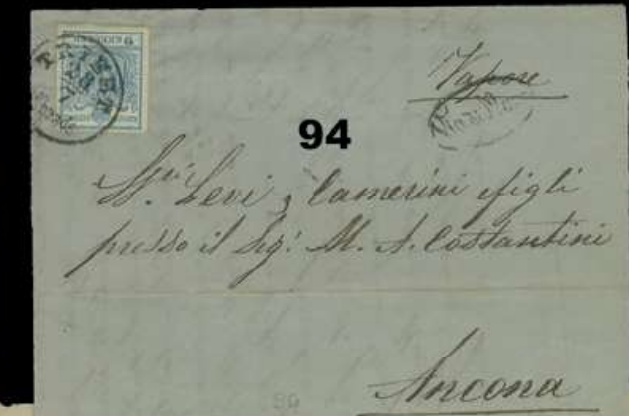 TRIEST
Vapore
94
Sri. Levi, Camerini e figli
presso il Sigr. M. A. Costantini
Ancona